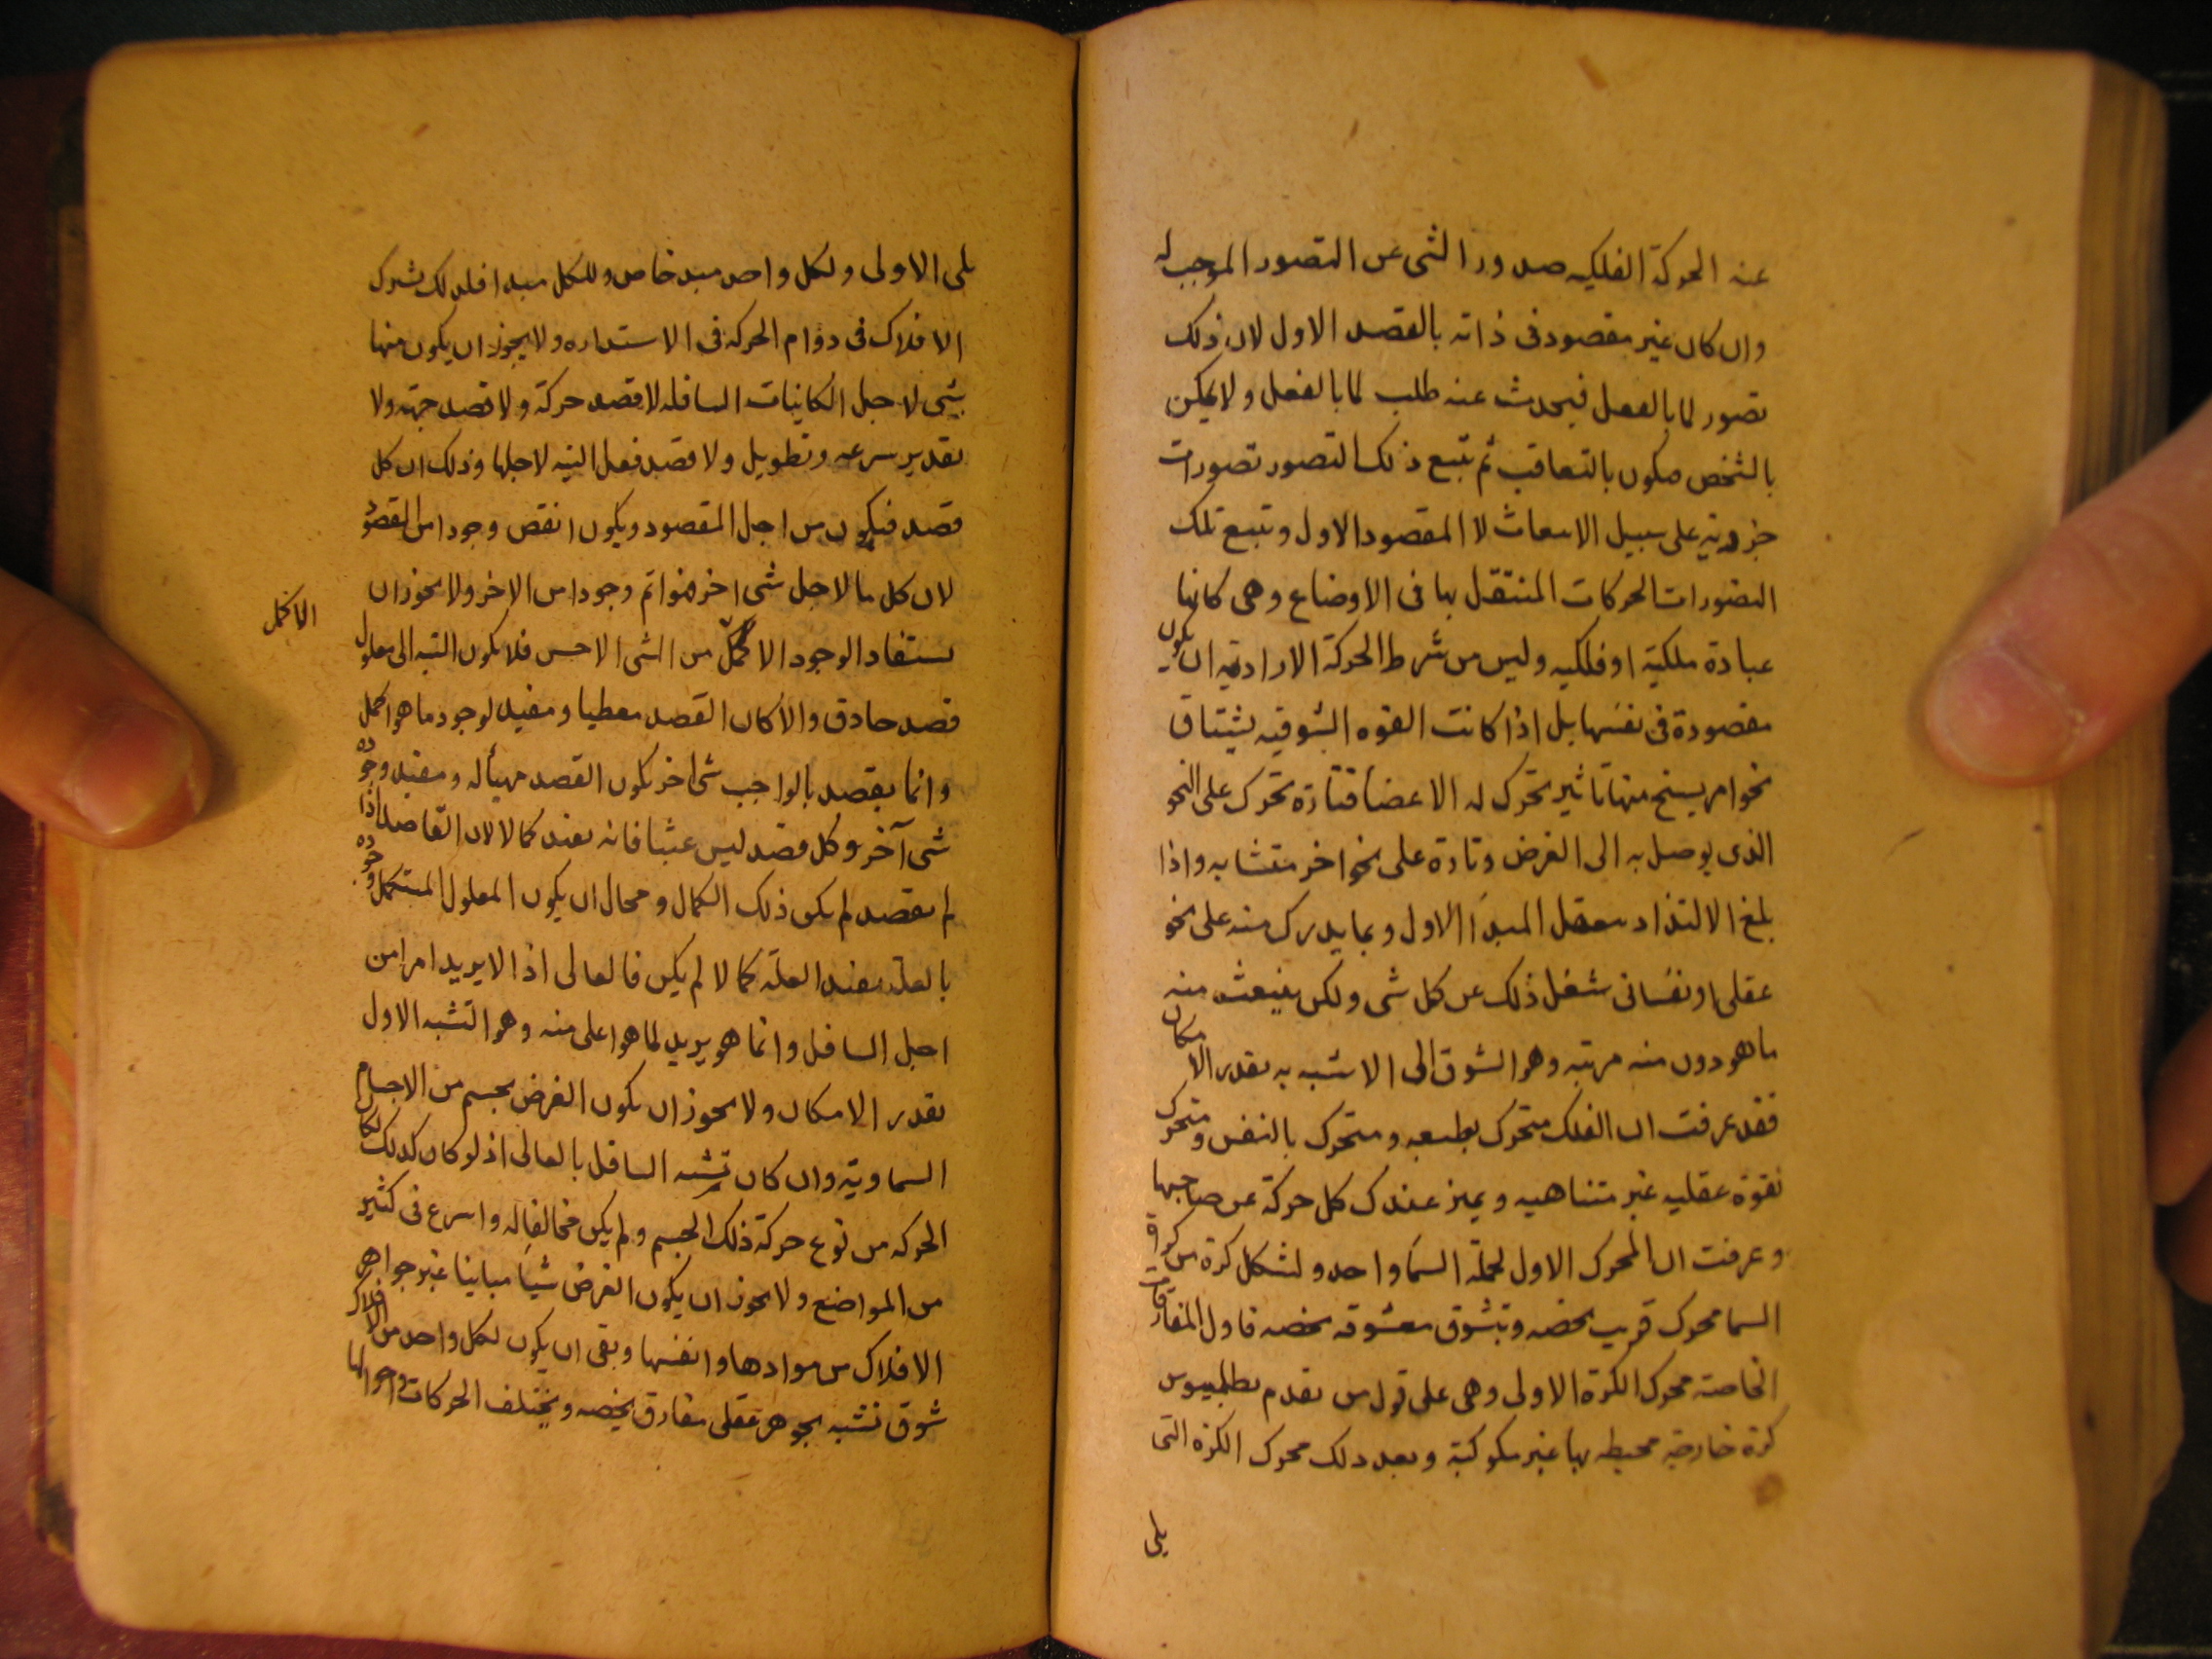 عنه الحركة الفلكيه صدور الشى عن التصور الموجب له
وان كان غير مقصود فى ذاته بالقصد الاول لان ذلك
تصور لما بالفعل فيحدث عنه طلب لما بالفعل ولا يمكن
بالشخص فيكون بالتعاقب ثم تتبع ذلك التصور تصورات
جزوية على سبيل الانبعاث لا المقصود الاول وتتبع تلك
التصورات الحركات المنتقل بها فى الاوضاع وهى كانها
عبادة ملكية او فلكيه وليس من شرط الحركة الارادية ان يكون
مقصودة فى نفسها بل اذا كانت القوه الشوقيه يشتاق
نحو امر يسنح منها تاثير تحرك له الاعضا فتارة تحرك على النحو
الذى يوصل به الى الغرض وتارة على نحو اخر متشابه واذا
بلغ الالتذاذ بتعقل المبدأ الاول وبما يدرك منه على نحو
عقلى او نفسانى شغل ذلك عن كل شى ولكن ينبعث منه
ما هو دون منه مرتبه وهو الشوق الى الاشبه به بقدر الامكان
فقد عرفت ان الفلك متحرك بطبعه ومتحرك بالنفس ومتحرك
بقوة عقليه غير متناهيه ويميز عندك كل حركة عن صاحبها
وعرفت ان المحرك الاول لجملة السما واحد ولشكل كرة من كرات
السما محرك قريب يخصه وتشوق معشوقه يخصه فاول المفارقات
الخاصة محرك الكرة الاولى وهى على قول من تقدم بطلميوس
كرة خارجة محيطه بها غير مكوكبة وبعد ذلك محرك الكرة التى
يلى
يلى الاولى ولكل واحد مبد خاص وللكل مبدا فلذلك تشترك
الافلاك فى دوام الحركة فى الاستداره ولا يجوز ان يكون منها
شى لاجل الكائنات السافله لا قصد حركة ولا قصد جهة ولا
تقدير سرعه وتطويل ولا قصد فعل البته لاجلها وذلك ان كل
قصد فيكون من اجل المقصود ويكون انقص وجودا من المقصود
لان كل ما لاجل شى اخر فهو اتم وجودا من الاخر ولا يجوز ان
الاكمل
يستفاد الوجود الاكمل من الشى الاخس فلا يكون البته الى معلول
قصد صادق والا كان القصد معطيا ومفيد لوجود ما هو اكمل
وانما يقصد بالواجب شى اخر يكون القصد مهيأ له ومفيد وجوده
شى آخر وكل قصد ليس عبثا فانه يفيد كمالا لان القاصد اذا
لم يقصد لم يكن ذلك الكمال ومحال ان يكون المعلول المستكمل وجوده
بالعلة يفيد العلة كمالا لم يكن فالعالى اذا لا يريد امرا من
اجل السافل وانما هو يريد لما هو اعلى منه وهو التشبه الاول
بقدر الامكان ولا يجوز ان يكون الغرض بجسم من الاجسام
السماوية وان كان تشبه السافل بالعالى اذ لو كان كذلك لكان
الحركه من نوع حركة ذلك الجسم ولم يكن مخالفا له واسرع فى كثير
من المواضع ولا يجوز ان يكون الغرض شيا مباينا غير جواهر
الافلاك من موادها وانفسها وبقى ان يكون لكل واحد من الافلاك
شوق تشبه بجوهر عقلى مفارق يخصه ويختلف الحركات واحوالها